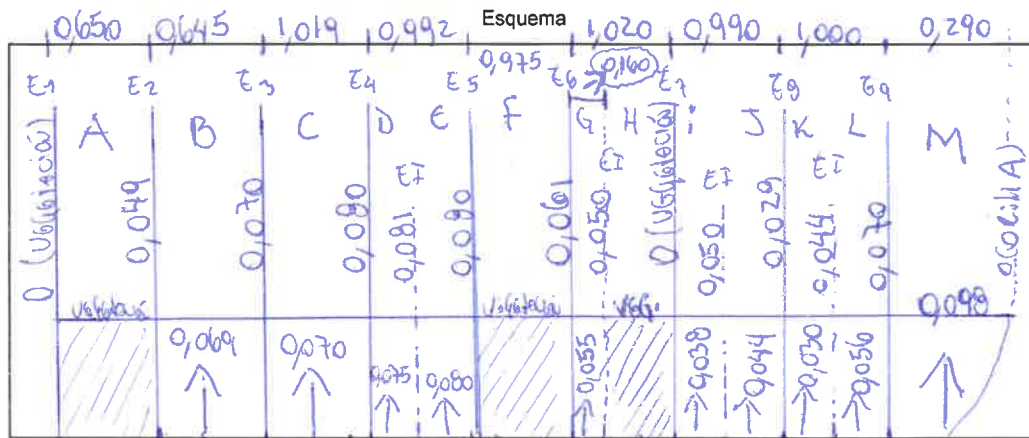 Esquema
0,650 0,645 1,019 0,992 1,020 0,990 1,000 0,290
0,975 0,160
E1 E2 E3 E4 E5 E6 E7 E8 E9
A B C D E F G H i J K L M
EI EI EI EI
0 (Vegetación) 0,049 0,070 0,080 0,081 0,080 0,061 0,050 0 (Vegetación) 0,050 0,029 0,044 0,070 0 (ORILLA)
Vegetación Vegetación VEG. 0,098
0,069 0,070 0,075 0,080 0,055 0,038 0,044 0,030 0,056